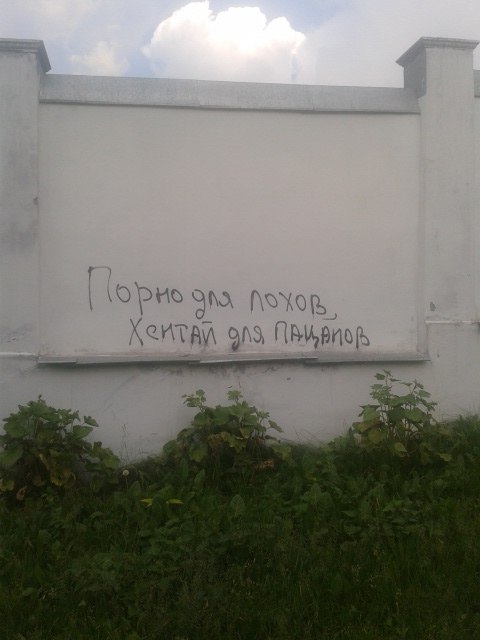 Порно для лохов,
хентай для пацанов